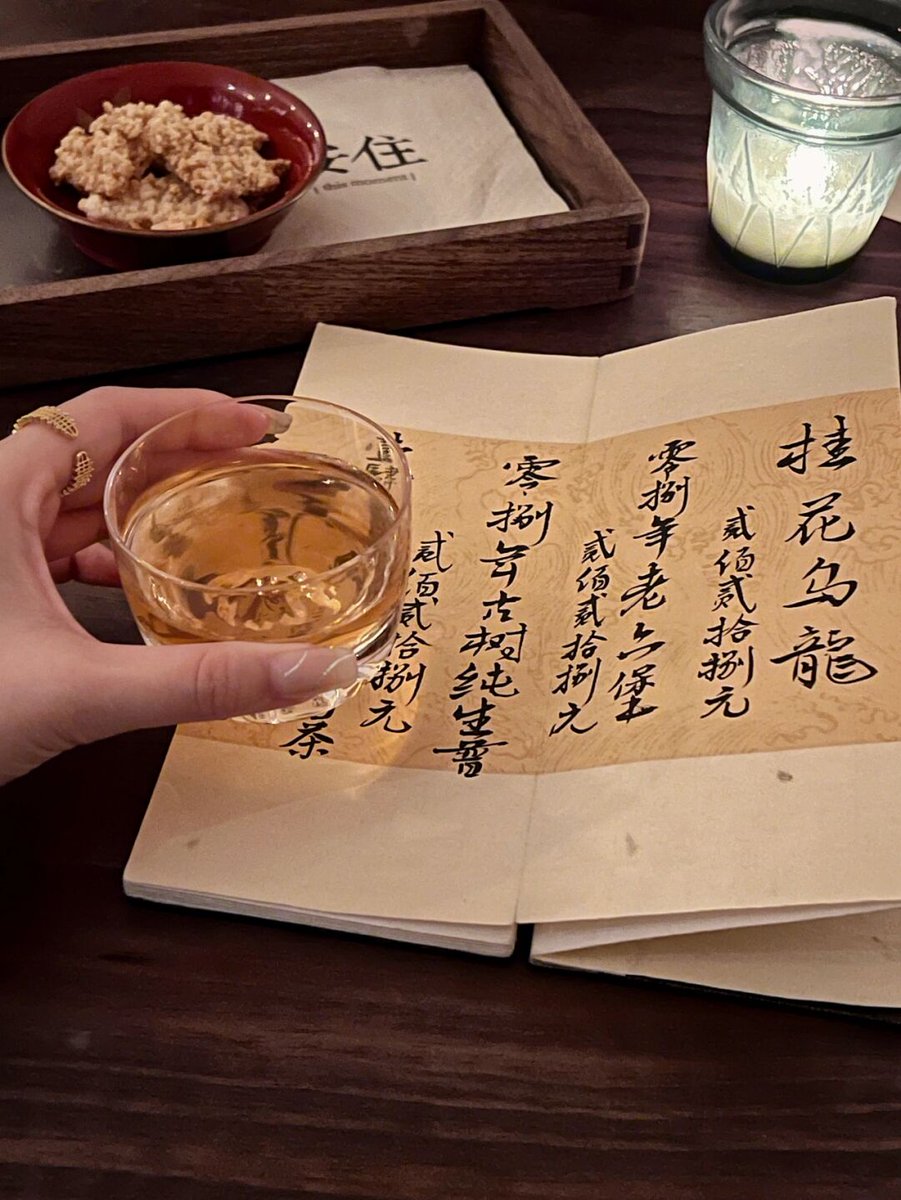 住
| this moment |
桂花乌龍
贰佰贰拾捌元
零捌年老六堡
贰佰贰拾捌元
零捌年古树纯生普
贰佰贰拾捌元
茶